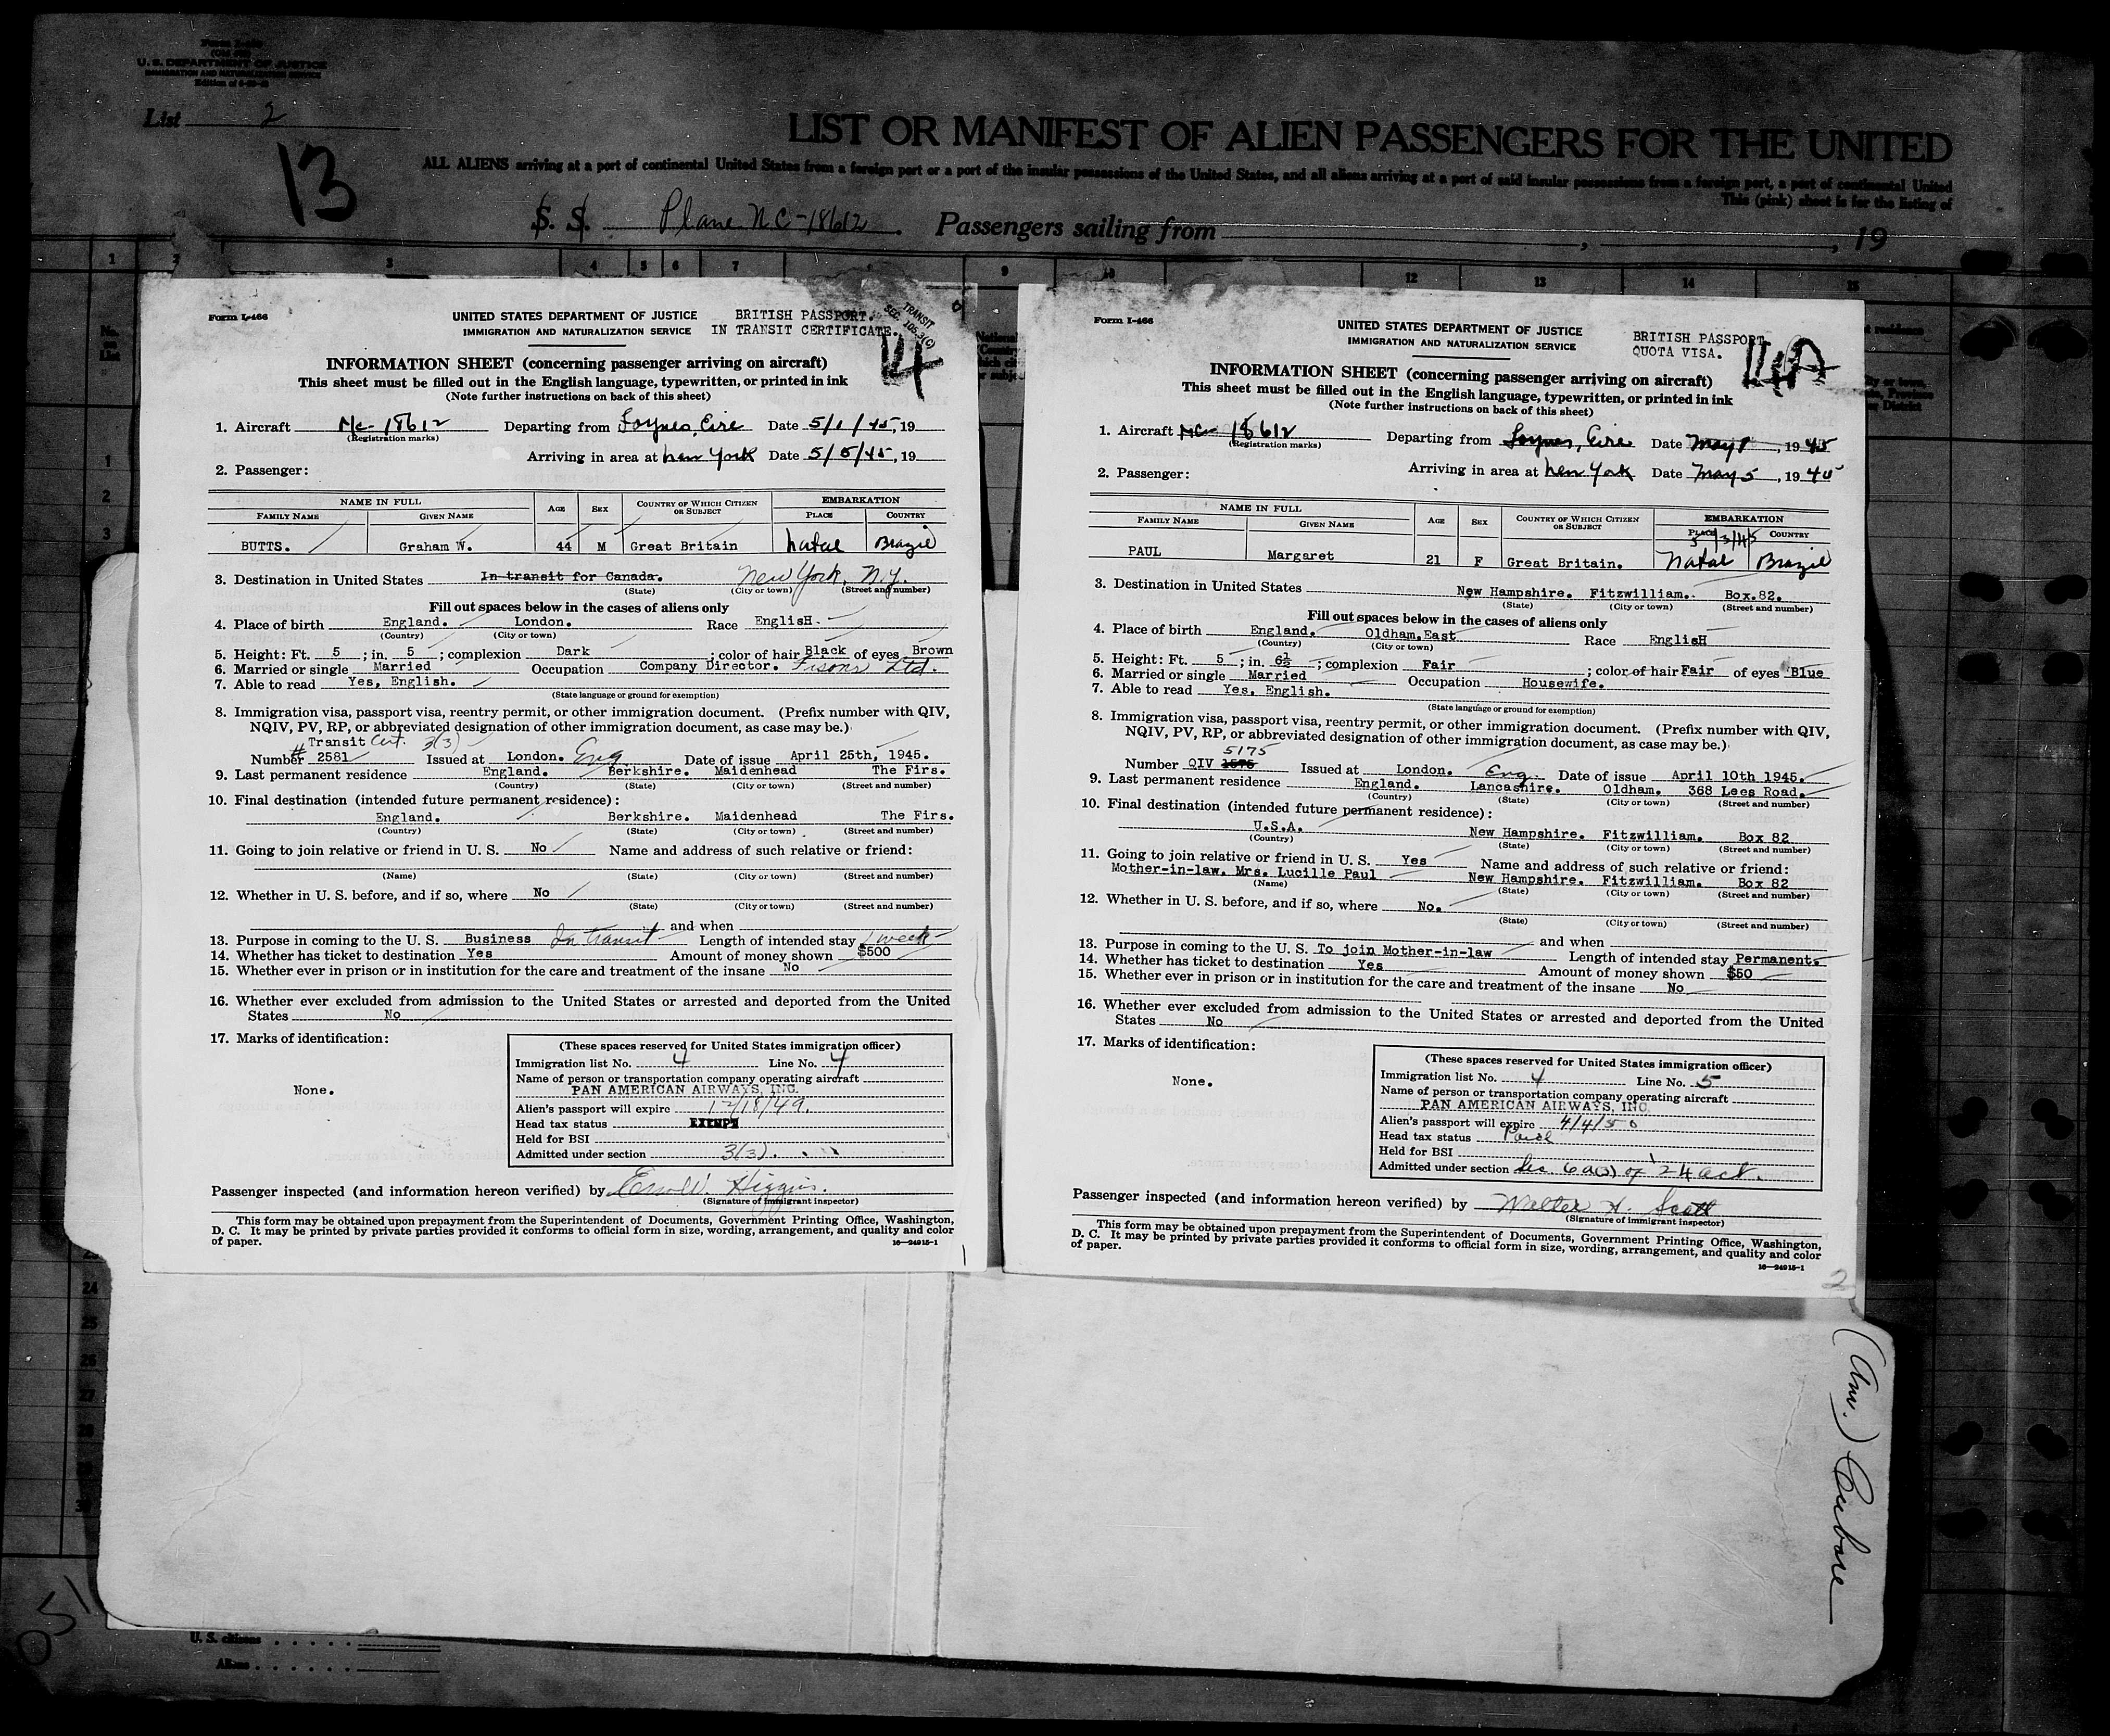 U. S. DEPARTMENT OF JUSTICE
IMMIGRATION AND NATURALIZATION SERVICE
List 2
13
LIST OR MANIFEST OF ALIEN PASSENGERS FOR THE UNITED
ALL ALIENS arriving at a port of continental United States from a foreign port or a port of the insular possessions of the United States, and all aliens arriving at a port of said insular possessions from a foreign port, a port of continental United
This (pink) sheet is for the listing of
S. S. Plane NC-18612. Passengers sailing from , , 19
1 2 3 4 5 6 7 9 10 12 13 14 15
Form I-466
UNITED STATES DEPARTMENT OF JUSTICE
IMMIGRATION AND NATURALIZATION SERVICE
BRITISH PASSPORT.
IN TRANSIT CERTIFICATE.
TRANSIT
SEC. 105.3(C)
14
INFORMATION SHEET (concerning passenger arriving on aircraft)
This sheet must be filled out in the English language, typewritten, or printed in ink
(Note further instructions on back of this sheet)
1. Aircraft NC-18612 Departing from Foynes, Eire Date 5/1/45, 19
(Registration marks)
Arriving in area at New York Date 5/5/45, 19
2. Passenger:
NAME IN FULL AGE SEX COUNTRY OF WHICH CITIZEN OR SUBJECT EMBARKATION
FAMILY NAME GIVEN NAME PLACE COUNTRY
BUTTS. Graham W. 44 M Great Britain Natal Brazil
3. Destination in United States In transit for Canada. New York, N.Y.
(State) (City or town) (Street and number)
Fill out spaces below in the cases of aliens only
4. Place of birth England. London. Race EnglisH.
(Country) (City or town)
5. Height: Ft. 5 ; in. 5 ; complexion Dark ; color of hair Black of eyes Brown
6. Married or single Married Occupation Company Director. Fisons Ltd.
7. Able to read Yes, English.
(State language or ground for exemption)
8. Immigration visa, passport visa, reentry permit, or other immigration document. (Prefix number with QIV,
NQIV, PV, RP, or abbreviated designation of other immigration document, as case may be.)
Transit Cert. 3(3)
# Number 2581 Issued at London. Eng Date of issue April 25th, 1945.
9. Last permanent residence England. Berkshire. Maidenhead The Firs.
(Country) (State) (City or town) (Street and number)
10. Final destination (intended future permanent residence):
England. Berkshire. Maidenhead The Firs.
(Country) (State) (City or town) (Street and number)
11. Going to join relative or friend in U. S. No Name and address of such relative or friend:
(Name) (State) (City or town) (Street and number)
12. Whether in U. S. before, and if so, where No
(State) (City or town) (Street and number)
and when
13. Purpose in coming to the U. S. Business In transit Length of intended stay 1 week
14. Whether has ticket to destination Yes Amount of money shown $500
15. Whether ever in prison or in institution for the care and treatment of the insane No
16. Whether ever excluded from admission to the United States or arrested and deported from the United
States No
17. Marks of identification:
None.
(These spaces reserved for United States immigration officer)
Immigration list No. 4 Line No. 4
Name of person or transportation company operating aircraft
PAN AMERICAN AIRWAYS, INC.
Alien's passport will expire 12/18/49.
Head tax status EXEMPT
Held for BSI
Admitted under section 3(3).
Passenger inspected (and information hereon verified) by Higgins.
(Signature of immigrant inspector)
This form may be obtained upon prepayment from the Superintendent of Documents, Government Printing Office, Washington,
D. C. It may be printed by private parties provided it conforms to official form in size, wording, arrangement, and quality and color
of paper. 16—24915-1
1
Form I-466
UNITED STATES DEPARTMENT OF JUSTICE
IMMIGRATION AND NATURALIZATION SERVICE
BRITISH PASSPORT
QUOTA VISA.
14A
INFORMATION SHEET (concerning passenger arriving on aircraft)
This sheet must be filled out in the English language, typewritten, or printed in ink
(Note further instructions on back of this sheet)
1. Aircraft NC-18612 Departing from Foynes, Eire Date May 1, 1945
(Registration marks)
Arriving in area at New York Date May 5, 1945
2. Passenger:
NAME IN FULL AGE SEX COUNTRY OF WHICH CITIZEN OR SUBJECT EMBARKATION
FAMILY NAME GIVEN NAME PLACE COUNTRY
5/3/45
PAUL Margaret 21 F Great Britain. Natal Brazil
3. Destination in United States New Hampshire. Fitzwilliam. Box.82.
(State) (City or town) (Street and number)
Fill out spaces below in the cases of aliens only
4. Place of birth England. Oldham.East Race EnglisH
(Country) (City or town)
5. Height: Ft. 5 ; in. 6½ ; complexion Fair ; color of hair Fair of eyes Blue
6. Married or single Married Occupation Housewife.
7. Able to read Yes, English.
(State language or ground for exemption)
8. Immigration visa, passport visa, reentry permit, or other immigration document. (Prefix number with QIV,
NQIV, PV, RP, or abbreviated designation of other immigration document, as case may be.)
5175
Number QIV 1575 Issued at London. Eng. Date of issue April 10th 1945.
9. Last permanent residence England. Lancashire. Oldham. 368 Lees Road.
(Country) (State) (City or town) (Street and number)
10. Final destination (intended future permanent residence):
U.S.A. New Hampshire. Fitzwilliam. Box 82
(Country) (State) (City or town) (Street and number)
11. Going to join relative or friend in U. S. Yes Name and address of such relative or friend:
Mother-in-law. Mrs. Lucille Paul New Hampshire. Fitzwilliam. Box 82
(Name) (State) (City or town) (Street and number)
12. Whether in U. S. before, and if so, where No.
(State) (City or town) (Street and number)
and when
13. Purpose in coming to the U. S. To join Mother-in-law Length of intended stay Permanent.
14. Whether has ticket to destination Yes Amount of money shown $50
15. Whether ever in prison or in institution for the care and treatment of the insane No
16. Whether ever excluded from admission to the United States or arrested and deported from the United
States No
17. Marks of identification:
None.
(These spaces reserved for United States immigration officer)
Immigration list No. 4 Line No. 5
Name of person or transportation company operating aircraft
PAN AMERICAN AIRWAYS, INC.
Alien's passport will expire 4/4/50
Head tax status Paid
Held for BSI
Admitted under section Sec. 6a(3) of '24 act.
Passenger inspected (and information hereon verified) by Walter H. Scott
(Signature of immigrant inspector)
This form may be obtained upon prepayment from the Superintendent of Documents, Government Printing Office, Washington,
D. C. It may be printed by private parties provided it conforms to official form in size, wording, arrangement, and quality and color
of paper.
16—24915-1
2
24
25
26
27
U. S. citizens
Aliens